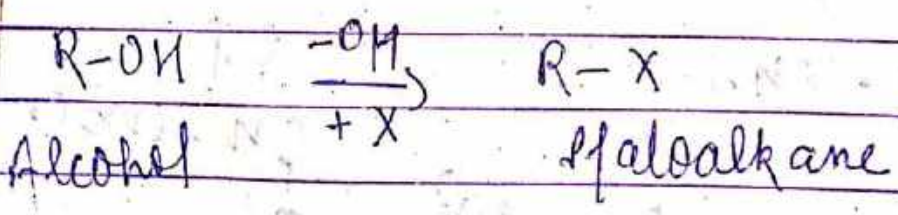 R-OH -OH R-X
+ X
Alcohol Haloalkane